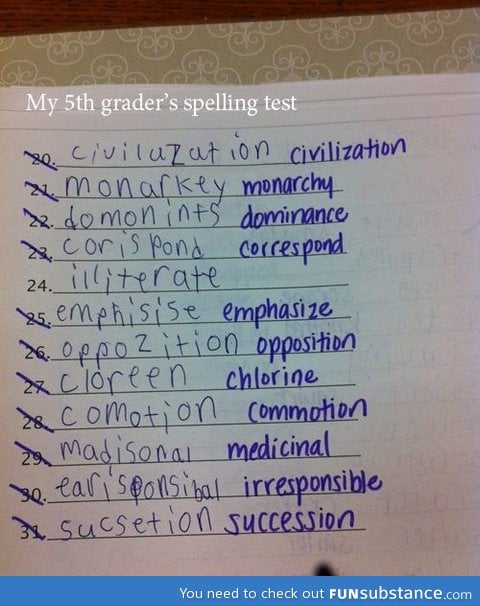 My 5th grader's spelling test
20. civiluzution civilization
21. monarkey monarchy
22. domonints dominance
23. corispond correspond
24. illiterate
25. emphisise emphasize
26. oppozition opposition
27. cloreen chlorine
28. comotion commotion
29. madisonal medicinal
30. earisponsibal irresponsible
31. sucsetion succession
You need to check out FUNsubstance.com